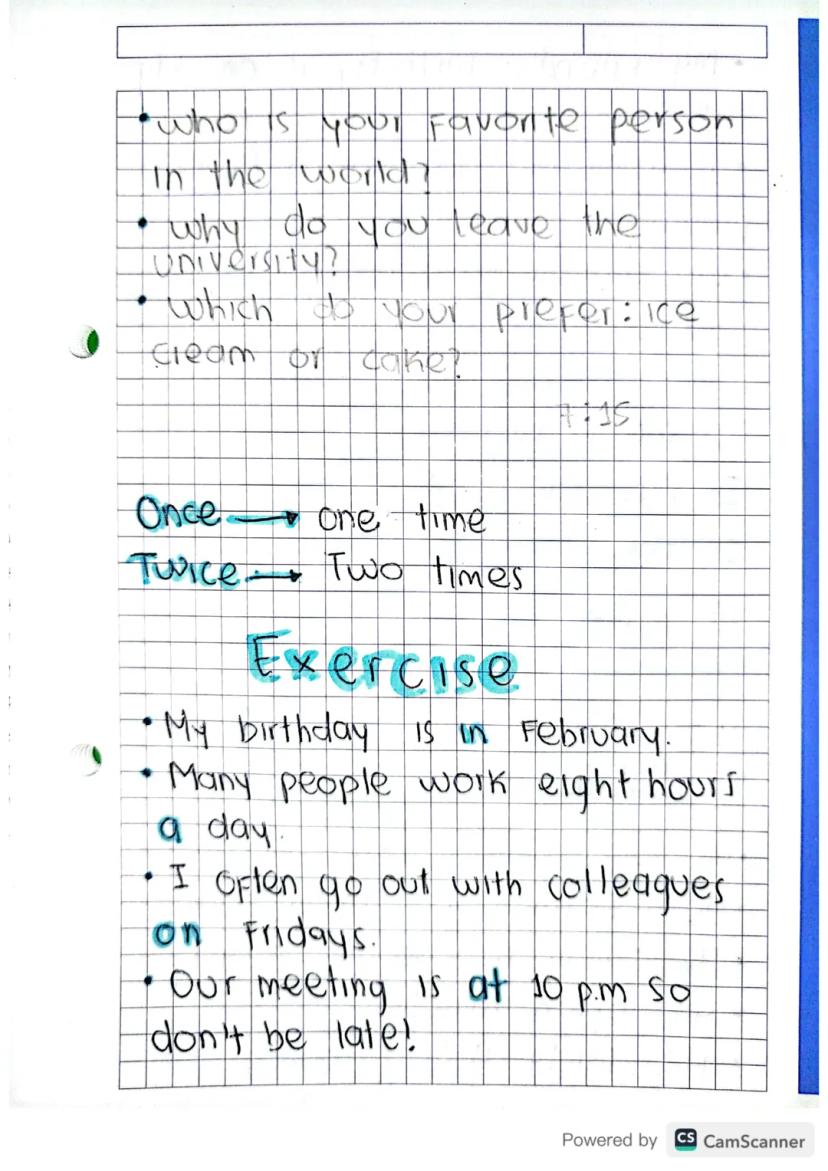 • who is your Favorite person
in the world?
• why do you leave the
university?
• Which do your prefer: ice
cream or cake?
7:15
Once → one time
Twice → Two times
Exercise
• My birthday is in February.
• Many people work eight hours
a day.
• I often go out with colleagues
on Fridays.
• Our meeting is at 10 p.m so
don't be late!
Powered by CS CamScanner